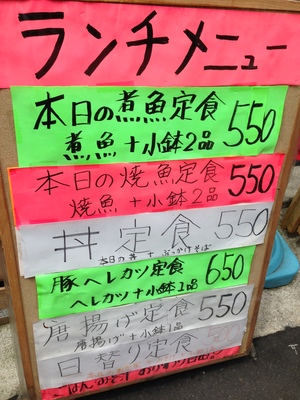 ランチメニュー
本日の煮魚定食 550
煮魚+小鉢2品
本日の焼魚定食 550
焼魚+小鉢2品
丼定食 550
本日の丼+ぶっかけそば
豚ヘレカツ定食 650
ヘレカツ+小鉢1品
唐揚げ定食 550
唐揚げ+小鉢1品
日替り定食 500
ごはん